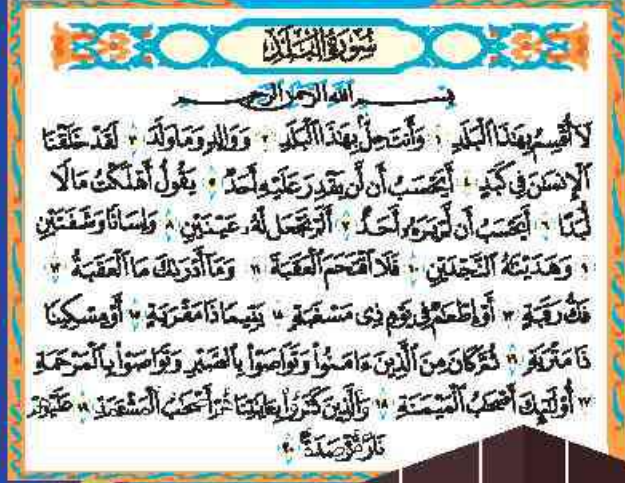 سُورَةُ الْبَلَدِ
بِسْمِ اللَّهِ الرَّحْمَٰنِ الرَّحِيمِ
لَا أُقْسِمُ بِهَٰذَا الْبَلَدِ ١ وَأَنتَ حِلٌّ بِهَٰذَا الْبَلَدِ ٢ وَوَالِدٍ وَمَا وَلَدَ ٣ لَقَدْ خَلَقْنَا
الْإِنسَٰنَ فِي كَبَدٍ ٤ أَيَحْسَبُ أَن لَّن يَقْدِرَ عَلَيْهِ أَحَدٌ ٥ يَقُولُ أَهْلَكْتُ مَالًا
لُّبَدًا ٦ أَيَحْسَبُ أَن لَّمْ يَرَهُ أَحَدٌ ٧ أَلَمْ نَجْعَل لَّهُ عَيْنَيْنِ ٨ وَلِسَانًا وَشَفَتَيْنِ
٩ وَهَدَيْنَٰهُ النَّجْدَيْنِ ١٠ فَلَا اقْتَحَمَ الْعَقَبَةَ ١١ وَمَا أَدْرَىٰكَ مَا الْعَقَبَةُ ١٢
فَكُّ رَقَبَةٍ ١٣ أَوْ إِطْعَٰمٌ فِي يَوْمٍ ذِي مَسْغَبَةٍ ١٤ يَتِيمًا ذَا مَقْرَبَةٍ ١٥ أَوْ مِسْكِينًا
ذَا مَتْرَبَةٍ ١٦ ثُمَّ كَانَ مِنَ الَّذِينَ ءَامَنُوا وَتَوَاصَوْا بِالصَّبْرِ وَتَوَاصَوْا بِالْمَرْحَمَةِ
١٧ أُولَٰئِكَ أَصْحَٰبُ الْمَيْمَنَةِ ١٨ وَالَّذِينَ كَفَرُوا بِـَٔايَٰتِنَا هُمْ أَصْحَٰبُ الْمَشْـَٔمَةِ ١٩ عَلَيْهِمْ
نَارٌ مُّؤْصَدَةٌ ٢٠